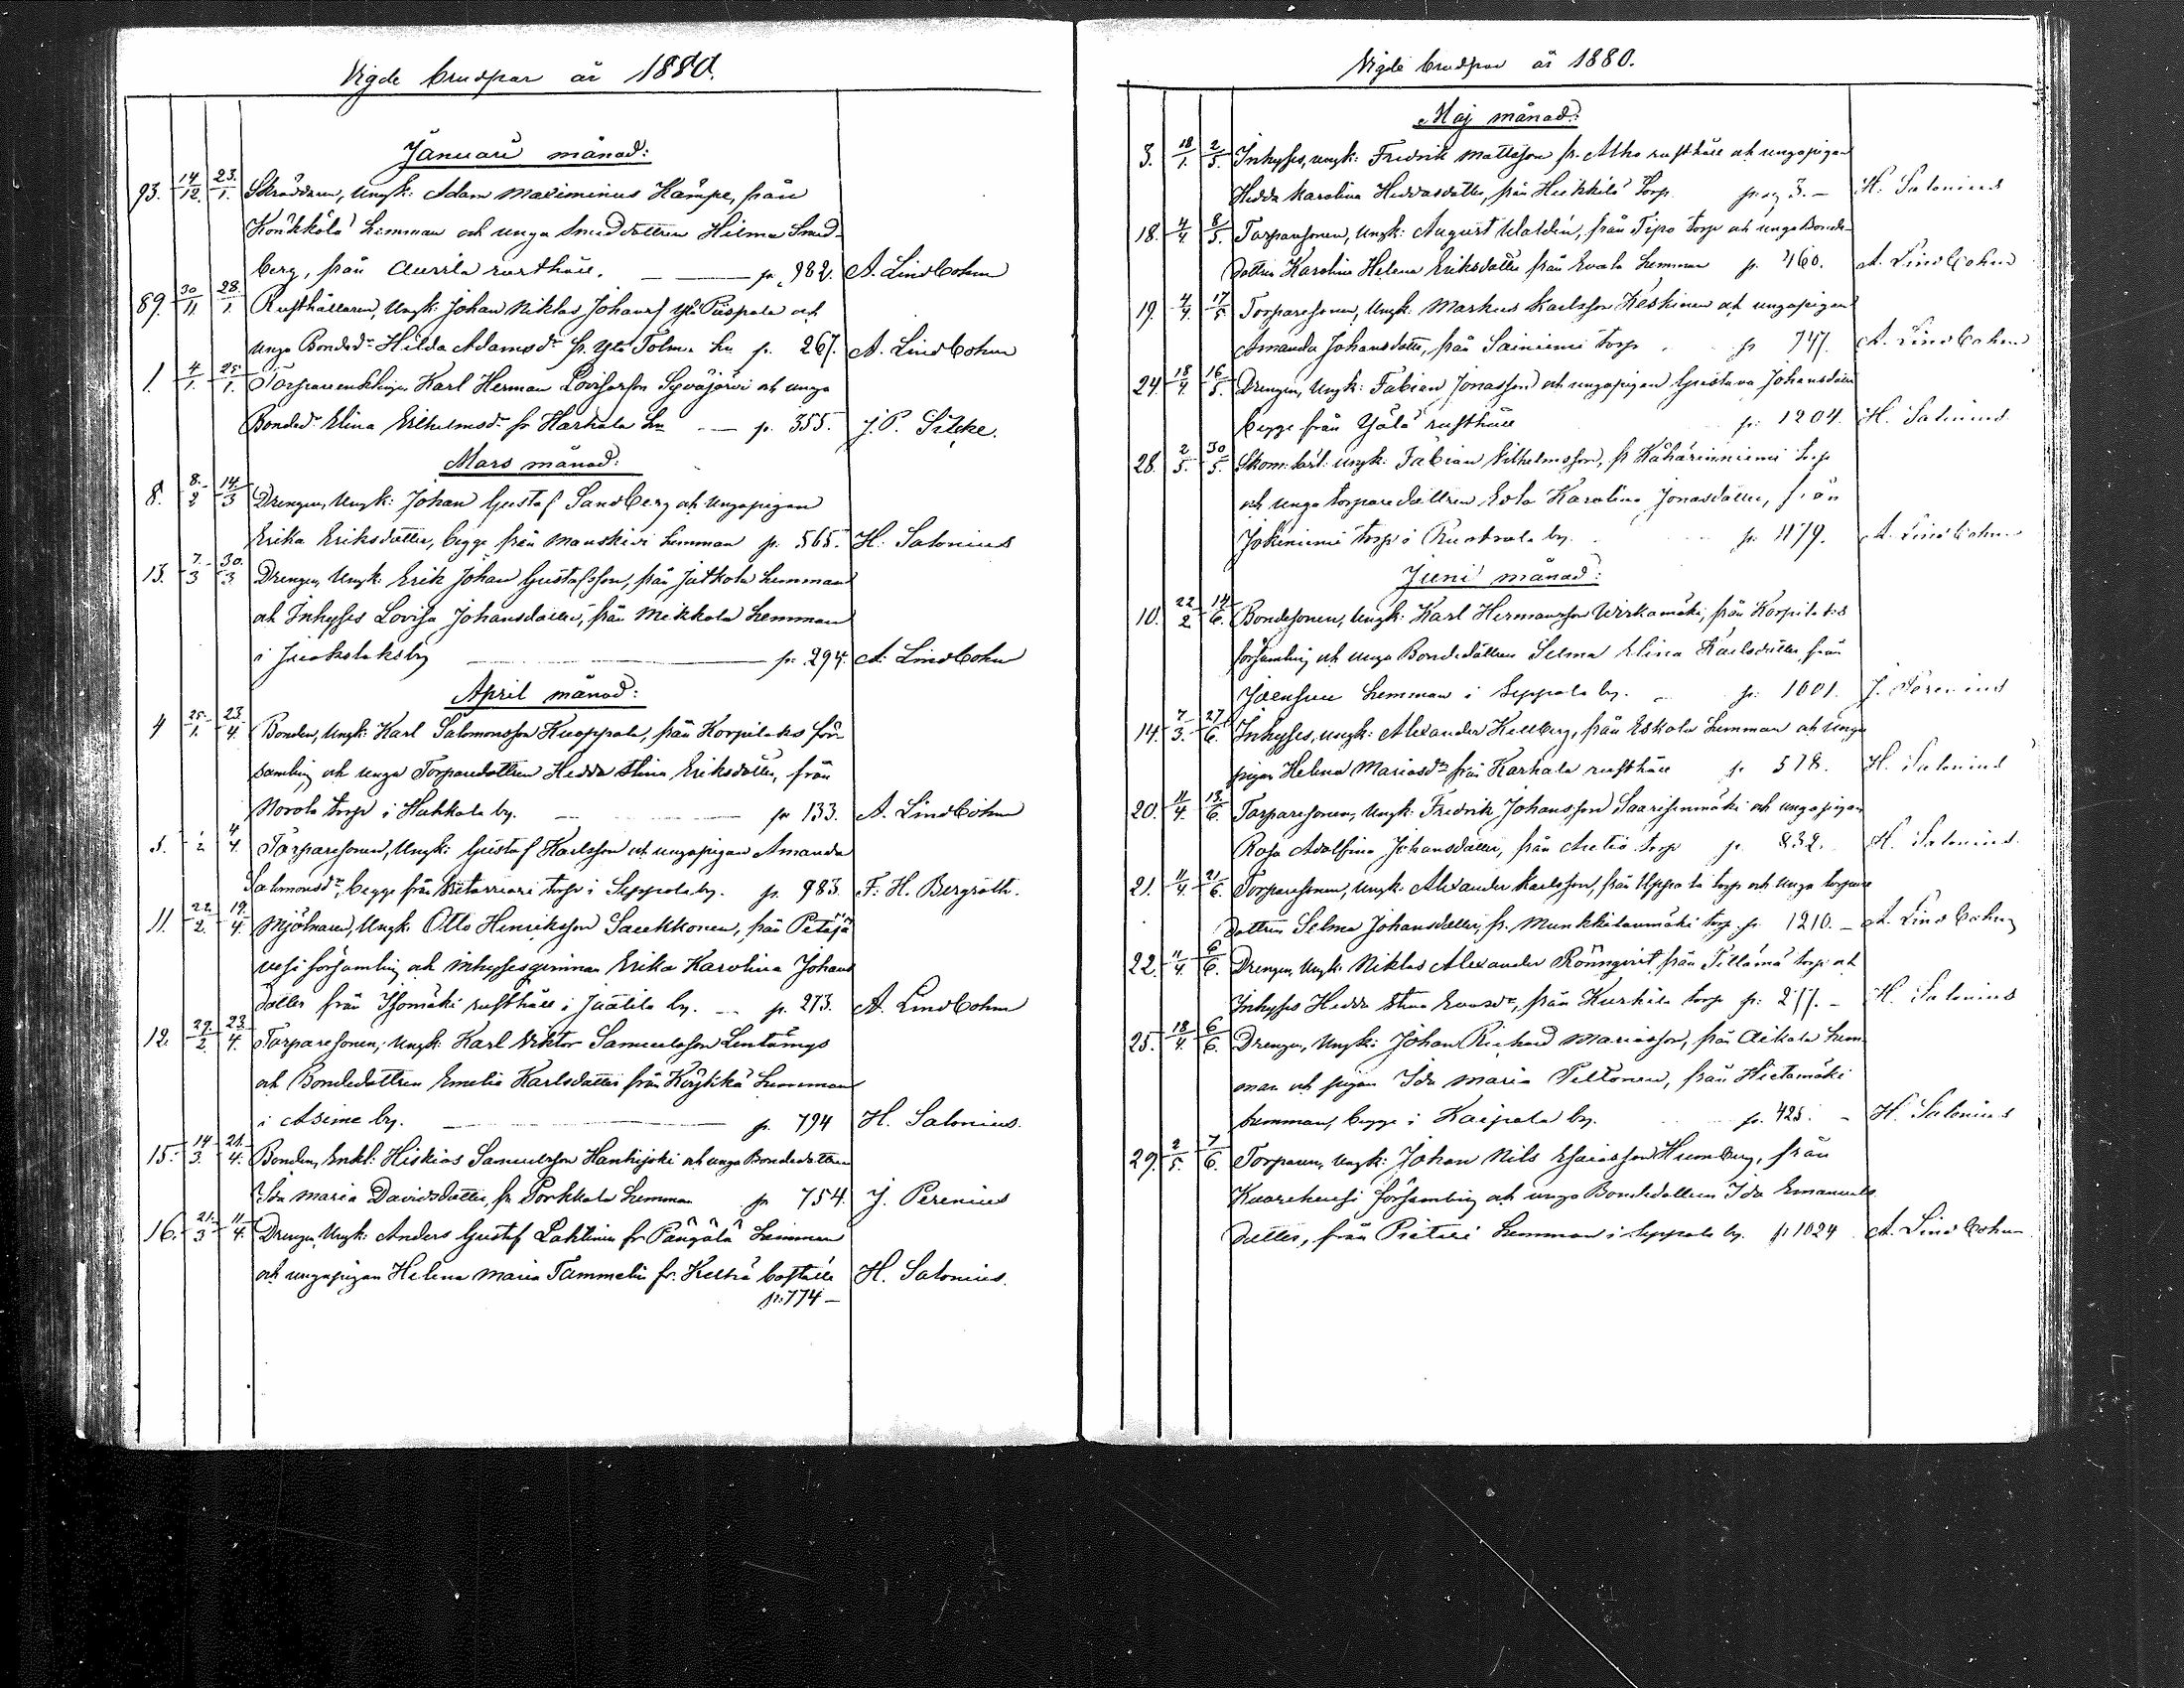 Vigde brudpar år 1880.
Januari månad:
93. 14/12. 23./1. Skräddaren, Ungk: Adam Maximinus Kämpe, från
Könkkölä hemman och unga Smeddottren Hilma Smed-
berg, från Aurila rusthåll. — p. 982. A. Lindbohm
89. 30/11 28./1. Rusthållaren, Ungk: Johan Niklas Johansf Yli Piispala och
unga Bonded:r Hilda Adamsd:r fr. Yli Tolm. Hn p. 267. A. Lindbohm
1. 4/1. 25./1. Karl Herman Lovisasson Syväjärvi och unga
Bonded:r Elina Vilhelmsd:r fr Harhala Hn — p. 355. J. P. Silcke.
Mars månad:
8. 8./2 14./3 Drengen, Ungk: Johan Gustaf Sandberg och Ungapigan
Erika Eriksdotter, begge från Mauskivi hemman p. 565. H. Salonius
13. 7./3 30./3 Drengen, Ungk: Erik Johan Gustafsson, från Jutkola hemman
och Inhyses Lovisa Johansdotter, från Mikkola hemman
i Juokslaksby — p: 294. A. Lindbohm
April månad:
4 25./1. 23./4. Bonden, Ungk: Karl Salomonsson Kuoppala, från Korpilaks för-
samling och unga Torparedottren Hedda Stina Eriksdotter, från
Norola torp i Hakkola by. — p 133. A. Lindbohm
5. 1/2 4/4. Torparesonen, Ungk: Gustaf Karlsson och ungapigan Amanda
Salomonsd:r, begge från torp i Seppola by. p. 983. F. H. Bergroth.
11. 22./2. 19./4. Mjölnaren, Ungk: Otto Henriksson Saukkonen, från Petäjä
vesi församling och inhysesqvinnan Erika Karolina Johans
dotter från Isomäki rusthåll i Jäätilä by. — p. 273. A. Lindbohm
12. 29./2. 23./4. Torparesonen, Ungk: Karl Viktor Samuelsson Lintumys
och Bondedottren Emelia Karlsdotter från Köykkä hemman
i Arime by. — p. 794 H. Salonius.
15. 14/3. 21./4. Bonden, Enkl: Hiskias Samuelsson Hankijoki och unga Bondedottren
Ida Maria Davidsdotter, fr Porkkola hemman p 754. J. Perenius
16. 21./3 11/4. Drengen, Ungk: Anders Gustaf Lahtinen fr. Pängälä hemman
och ungapigan Helena Maria Tammelin fr. Keltiä boställe H. Salonius.
p. 774 —
Vigde brudpar år 1880.
Maj månad:
3. 18/1. 2/5. Inhyses, ungk: Fredrik Mattsson fr. Alho rusthåll och ungapigan
Hedda Karolina Heddasdotter, från Heikkilä torp. pag 3. — H. Salonius
18. 4/4. 8/5. Torparesonen, Ungk: August Waldén, från Tipo torp och unga Bonde-
dottren Karolina Helena Eriksdotter från Evala hemman p. 460. A. Lindbohm
19. 4/4. 17/5 Torparesonen, Ungk: Markus Karlsson Keskinen och ungapigan
Amanda Johansdotter, från Sainiemi torp p 747. A. Lindbohm
24. 18/4 16/5. Drengen, Ungk: Fabian Jonasson och ungapigan Gustava Johansdotter
begge från Yälä rusthåll p: 1204. H. Salonius
28. 2/5. 30/5. Skom: lärl: ungk: Fabian Vilhelmsson, fr Kähärinniemi torp
och unga torparedottren Eva Karolina Jonasdotter, från
Jokiniemi torp i Ruotsala by. p: 1179. A. Lindbohm
Juni månad:
10. 22/2 14/6. Bondesonen, Ungk: Karl Hermansson Wirkamäki, från Korpilaks
församling och unga Bondedottren Selma Elina Karlsdotter, från
Joensuu hemman i Seppola by. p: 1001. J. Perenius
14. 7/3. 27/6. Inhyses, ungk: Alexander Kellberg, från Eskola hemman och unga
pigan Helena Mariasd:r från Karhala rusthåll p 578. H. Salonius
20. 11/4. 13/6. Torparesonen, Ungk: Fredrik Johansson Saarisenmäki och ungapigan
Rosa Adolfina Johansdotter, från torp p. 832. H. Salonius.
21. 11/4. 21/6. Torparesonen, Ungk: Alexander Karlsson, från Uppola torp och unga torpare
dottren Selma Johansdotter, fr. Munkkilanmäki torp. p. 1210. — A. Lindbohm
22. 11/4. 6/6. Drengen, Ungk: Niklas Alexander Rönnqvist från Tillämä torp och
Inhyses Hedda Stina Evasd:r, från Kurkila torp p: 277. — H. Salonius
25. 18/4. 6/6. Drengen, Ungk: Johan Richard Mariasson, från Aikala hem
man och pigan Ida Maria Peltonen, från Hietamäki
hemman, begge i Kaipola by. p. 425. — H. Salonius
29. 2/5. 7/6. Torparen, Ungk: Johan Nils Esaiasson Humberg, från
Kuorehensi församling och unga Bondedottren Ida Emanuels
dotter, från Pietari hemman i Seppola by. p 1024 A. Lindbohm.